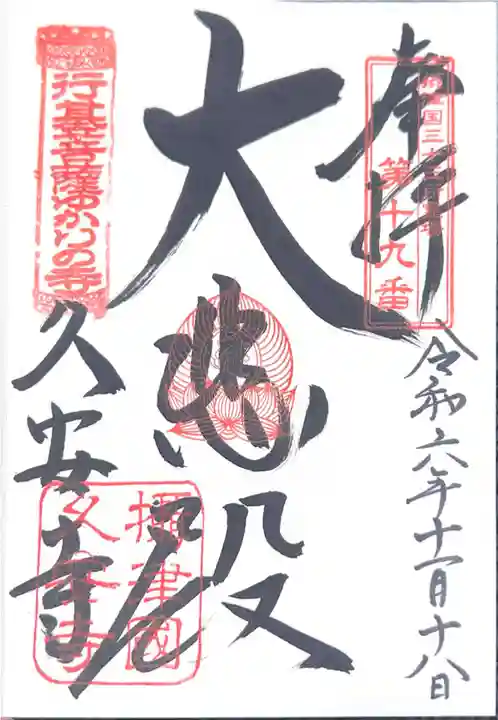 奉拝
摂津国三十三所
第十九番
令和六年十一月十八日
大悲殿
行基菩薩ゆかりの寺
久安寺
攝津國
久安寺